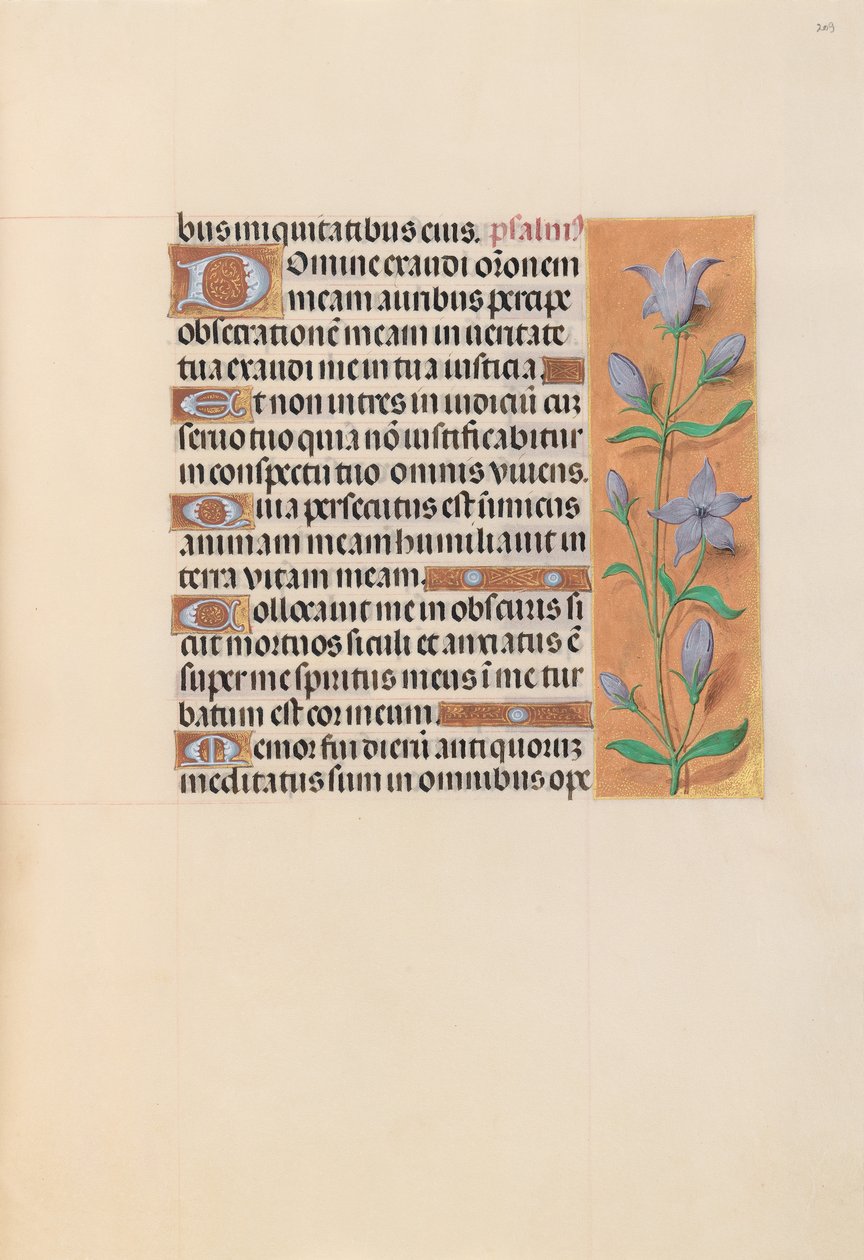 209
bus iniquitatibus eius. psalm9
Domine exaudi or̄onem
meam auribus percipe
obsecrationē meam in ueritate
tua exaudi me in tua iusticia.
Et non intres in iudiciū cuꝫ
seruo tuo quia nō iustificabitur
in conspectu tuo omnis viuens.
Quia persecutus est inimicus
animam meam humiliauit in
terra vitam meam.
Collocauit me in obscuris si
cut mortuos siculi et anxiatus ē
super me spiritus meus ī me tur
batum est cor meum.
Memor fui dierū antiquoruꝫ
meditatus sum in omnibus ope